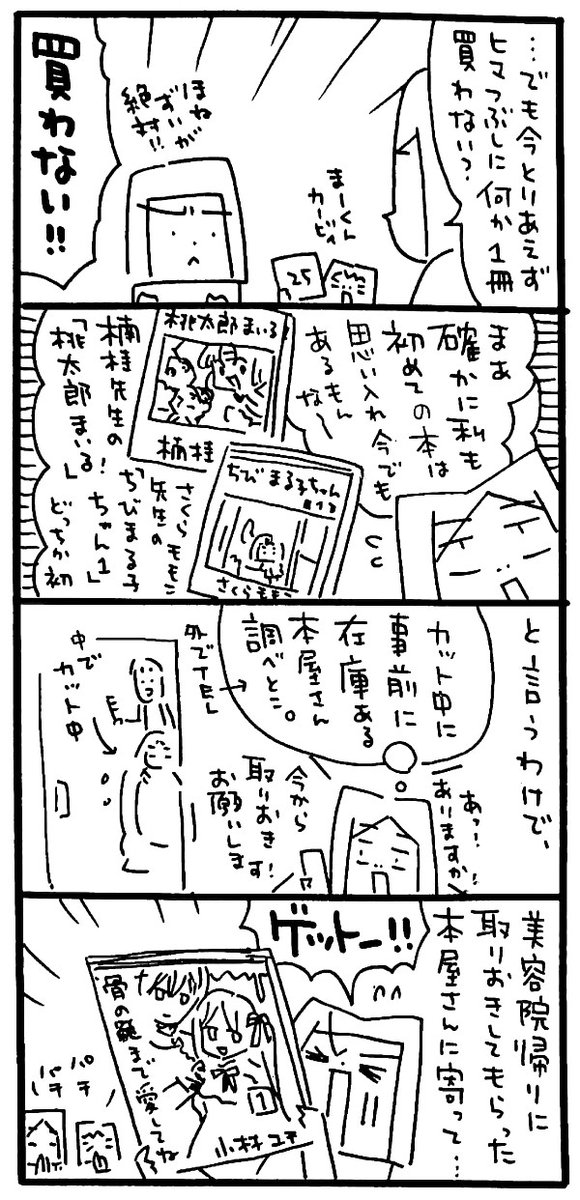 …でも今とりあえず
ヒマつぶしに何か1冊
買わない?
まーくん
カービィ
25
ほね
ずいが
絶対!!
買わない!!
まあ
確かに私も
初めての本は
思い入れ今でも
あるもん
な〜
桃太郎まいる
楠桂
ちびまる子ちゃん
さくらももこ
楠桂先生の
「桃太郎まいる!」
さくらももこ
先生の
「ちびまる子
ちゃん1」
どっちか初
と言うわけで、
カット中に
事前に
在庫ある
本屋さん
調べとこ。
外でTEL
中で
カット中
あっ!
ありますか!!
今から
取りおき
お願いします!
美容院帰りに
取りおきしてもらった
本屋さんに寄って…
ゲットー!!
骨の髄まで愛してね
1
小林ユキ
パチ
パチ